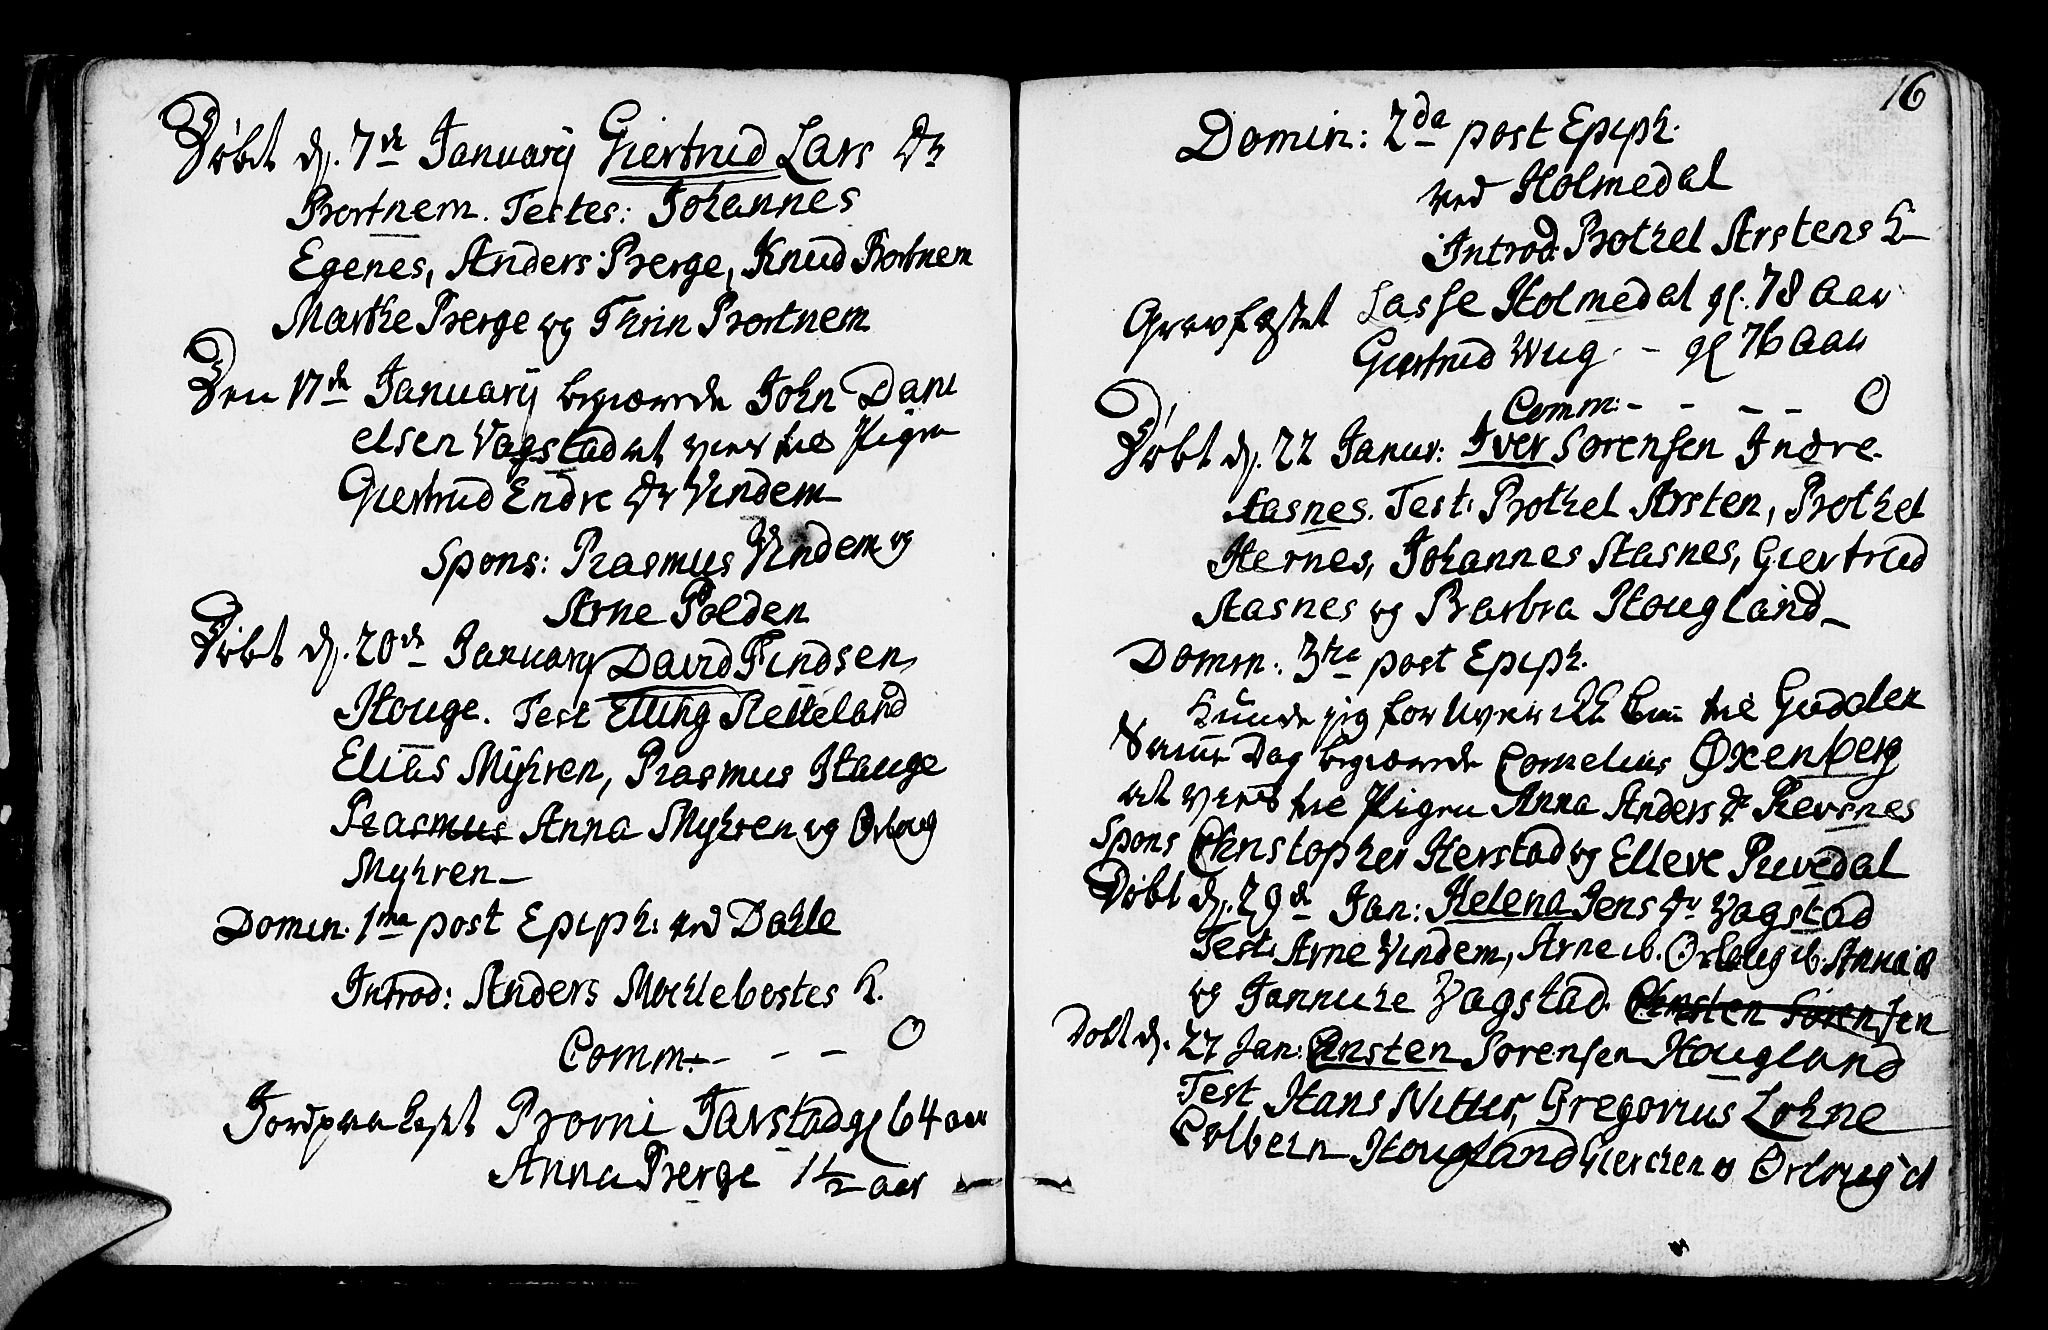 Døbt d. 7de Januarij Giertrud Lars Dr
Bortnem. Testes: Johannes
Egenes, Anders Berge, Knud Bortnem
Marthe Berge og Thrin Bortnem
Den 17de Januarij begiærede John Dani
elsen Vagstad at vies til Pigen
Giertrud Endre Dr Vindem
Spons: Rasmus Vindem og
Arne Folden
Døbt d. 20de Januarij David Findsen
Houge. Test Elling Sletteland
Elias Myhren, Rasmus Hauge
Rasmus Anna Myhren og Orloug
Myhren
Domin. 1ma post Epiph: ved Dahle
Introd: Anders Mochlebostes K.
Comm: - - - O
Jordpaakast Brorni Jarstad gl 64 aar
Anna Berge 1½ aar
16
Domin: 2da post Epiph.
ved Holmedal
Introd Bothel Arstens K
Gravfæstet Lasse Holmedal gl. 78 Aar
Giertrud Wug - gl 76 Aar
Comm: - - - - O
Døbt d. 22 Janur: Iver Sorensen Indre
Stasnes. Test: Bothel Arsten, Bothel
Hernes, Johannes Stasnes, Giertrud
Stasnes og Barbra Hougland
Domin: 3tia post Epiph.
Kunde jeg for Uveir ikke komme til Guddal
Samme Dag begiærede Cornelius Oxenberg
at vies til Pigen Anna Anders dr Revsnes
Spons Christopher Herstad og Elleve Ruvedal
Døbt d. 29de Jan: Helena Jens Dr Vagstad
Test: Arne Vindem, Arne ib. Orloug ib. Anna ib
og Jannuche Vagstad. Christen Sörensen
Døbt d. 27 Jan: Christen Sorensen Hougland
Test Hans Nitter, Gregorius Lohne
Colbein Hougland Gierchen og Orloug id